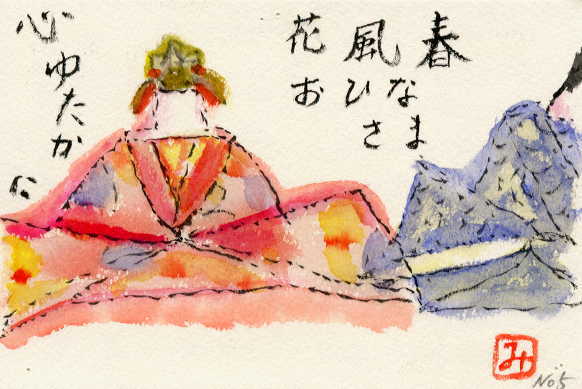 花風春
おひな
さま
心ゆたかに
み
No.5